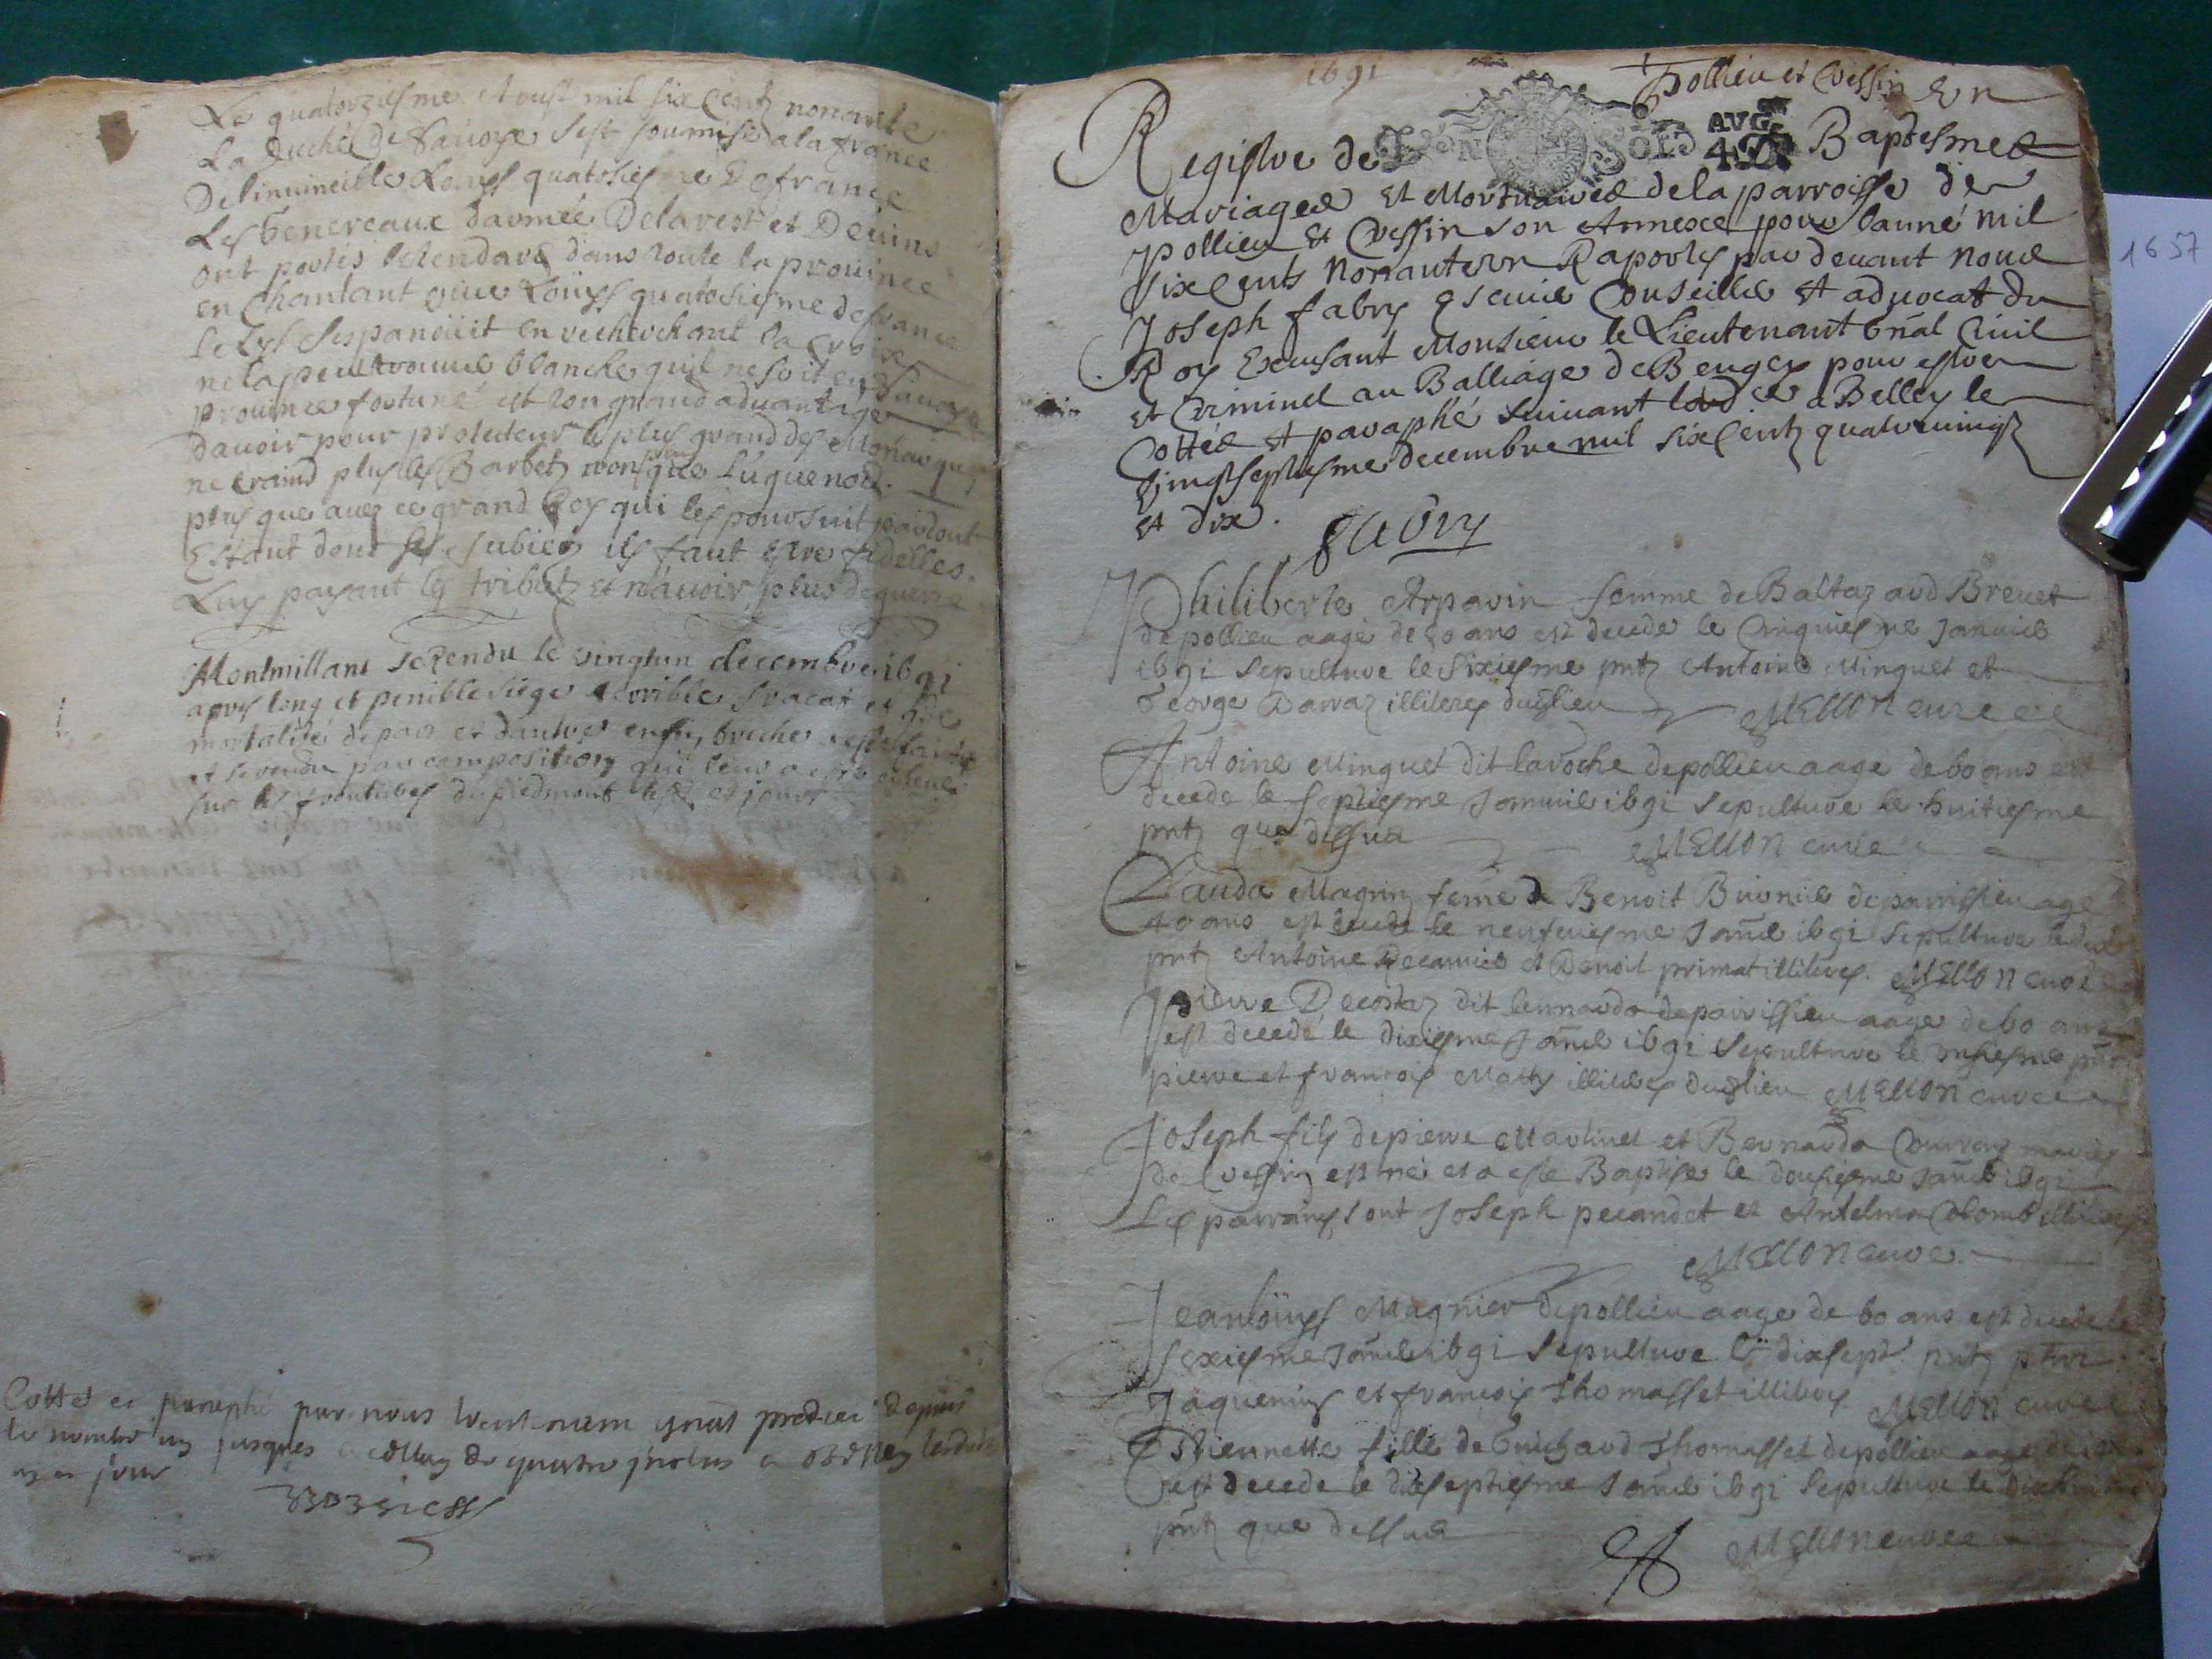 Le quatorziesme Aoust mil six Centz nonante
La duché de Savoye sest soumise a la france
De linuincible Louys quatosiesme De france
Les Genereaux darmée Delarest et Deuins
ont portés letendard dans toute la prouince
en Chantant viue Loüys quatosiesme de france
le Lys Sespanoüit en recherchant la croix
ne la peut trouuer blanche quil ne soit en Sauoye
prouince fortuné est son grand aduantage
dauoir pour protecteur le plus grand des Monarques
ne craind plus les Barbetz non plus que luguenod
plus que auez ce grand Roy qui les poursuit partout
Estant dont ses subiez ils faut estre fidelles.
Luy payant les tributz et n'auoir plus de guerre
Montmillant se Rendu le vingtun decembre 1691
apres long et penible siege horrible fracat et gde
mortalité de part et dautre enfin breche
et se rendu par composition qui leur a
sur les frontieres du piedmont
Cottés et paraphé par nous lieutenant gnal depuis
le nombre un jusques a de quatre inclus a Belley
an et jour
1691
Pollieu et Cressin Un
Registre de Baptesmes
AVG
Mariages Et Mortuaires de la parroisse de
Pollieu Et Cressin son Annexe pour lanné mil
six Cents nonanteun Raportes par deuant nous
Joseph fabry Escuier Conseiller et aduocat du
Roy Excusant Monsieur le Lieutenant Gnal Ciuil
et Criminel au Balliage de Beugey pour estre
Cottés et paraphé suiuant lord ce a Belley le
vingtseptiesme decembre mil six Centz quatreuingt
et dix.
fabry
1657
Philiberte Arparin femme de Baltazard Breuet
de pollieu aagé de 50 ans est decede le Cinquiesme Januier
1691 sepulture le sixiesme pntz Antoine Minguet et
George illiteres dudlieu MEllON cure
Antoine Minguet dit laroche de pollieu aage de 60 ans est
decede le septiesme Januier 1691 sepulture le huitiesme
pntz que dessus MEllON cure
Clauda Magnin feme de Benoit de parrissieu age
40 ans est decede le neufuiesme Janr 1691 sepulture le
pntz Antoine et Benoit primat illiteres. MEllON cure
pierre Decostaz dit de parrissieu aage de 60 ans
est decedé le dixiesme Janr 1691 sepulture le unsiesme pntz
pierre et francois illiteres dudlieu MEllON cure
Joseph fils de pierre Martinet et Bernarda mariés
de Cressin est né et a esté Baptise le dousiesme Janr 1691
Les parrains sont Joseph pecandet et Antelma Colomb illiteres
MEllON cure
Jeanloüys Magnier de pollieu aage de 60 ans est decede le
sexiesme Janr 1691 sepulture le dixsept pntz
Jaquemin et francois Thomasset illiteres MEllON cure
Estiennette fille de Guichard Thomasset de pollieu aage
est decede le dixseptiesme Janr 1691 sepulture le
pntz que dessus MEllON cure